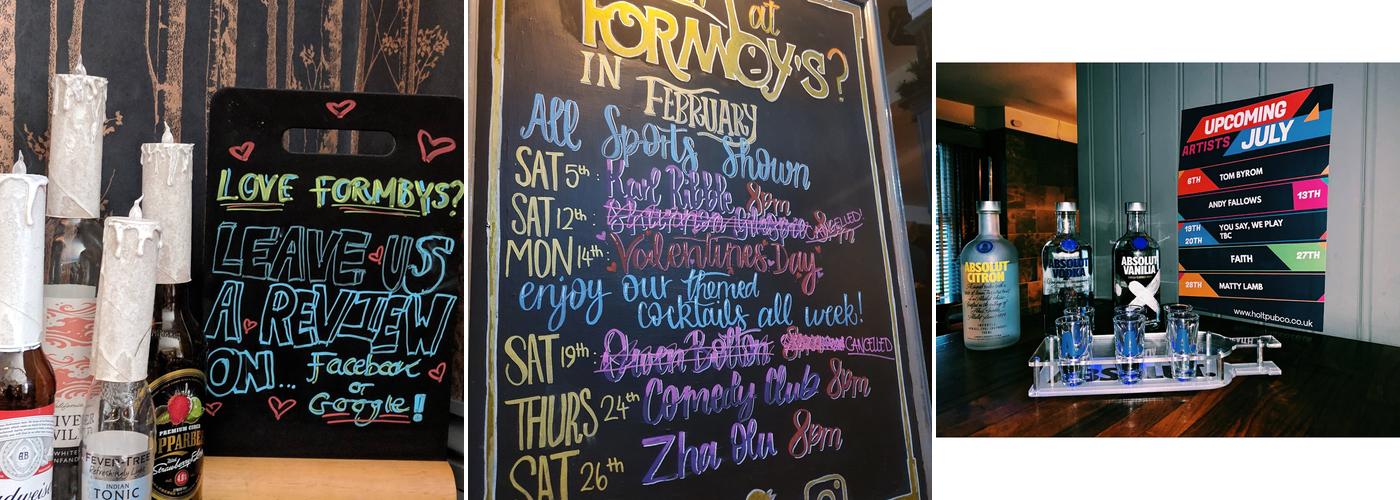 LOVE FORMBYS?
LEAVE US
A REVIEW
ON... Facebook
or
Google!
FIVE
WHITE
ZINFANDEL
FEVER-TREE
Refreshingly Light
INDIAN
TONIC
PREMIUM CIDER
KOPPARBERG
Strawberry
at
FORMBY'S?
IN FEBRUARY
All Sports Shown
SAT 5th: Karl Ribble 8pm
SAT 12th: CANCELLED!
MON 14th: Valentines Day
enjoy our themed
cocktails all week!
SAT 19th: Owen Bolton CANCELLED
THURS 24th Comedy Club 8pm
SAT 26th Zha Olu 8pm
UPCOMING
ARTISTS JULY
6TH TOM BYROM
ANDY FALLOWS 13TH
19TH YOU SAY, WE PLAY
20TH TBC
FAITH 27TH
28TH MATTY LAMB
www.holtpubco.co.uk
ABSOLUT
CITRON
VODKA
ABSOLUT
VANILIA
ABSOLUT.